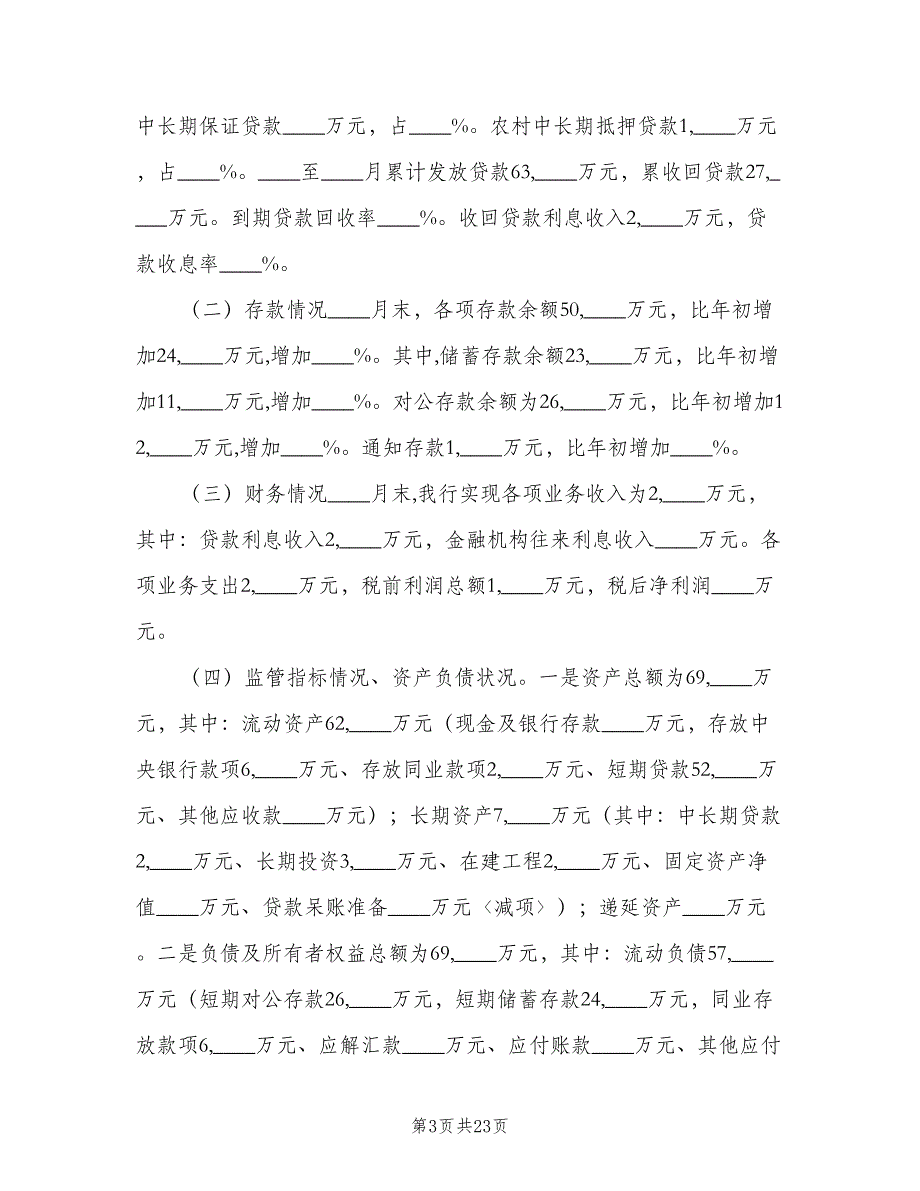 中长期保证贷款____万元，占____%。农村中长期抵押贷款1,____万元
，占____%。____至____月累计发放贷款63,____万元，累收回贷款27,_
___万元。到期贷款回收率____%。收回贷款利息收入2,____万元，贷
款收息率____%。
（二）存款情况____月末，各项存款余额50,____万元，比年初增
加24,____万元,增加____%。其中,储蓄存款余额23,____万元，比年初增
加11,____万元,增加____%。对公存款余额为26,____万元，比年初增加1
2,____万元,增加____%。通知存款1,____万元，比年初增加____%。
（三）财务情况____月末,我行实现各项业务收入为2,____万元，
其中：贷款利息收入2,____万元，金融机构往来利息收入____万元。各
项业务支出2,____万元，税前利润总额1,____万元，税后净利润____万
元。
（四）监管指标情况、资产负债状况。一是资产总额为69,____万
元，其中：流动资产62,____万元（现金及银行存款____万元，存放中
央银行款项6,____万元、存放同业款项2,____万元、短期贷款52,____万
元、其他应收款____万元）；长期资产7,____万元（其中：中长期贷款
2,____万元、长期投资3,____万元、在建工程2,____万元、固定资产净
值____万元、贷款呆账准备____万元〈减项〉）；递延资产____万元
。二是负债及所有者权益总额为69,____万元，其中：流动负债57,____
万元（短期对公存款26,____万元，短期储蓄存款24,____万元，同业存
放款项6,____万元、应解汇款____万元、应付账款____万元、其他应付
第3页共23页